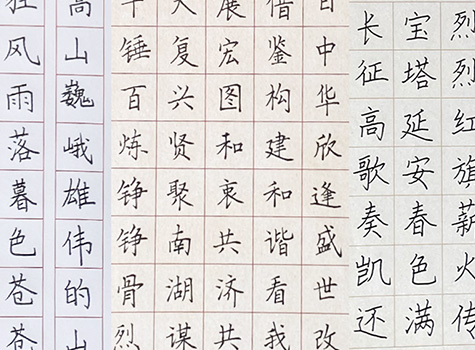 高山巍峨雄伟的山
狂风雨落暮色苍苍
日中华欣逢盛世改
借鉴构建和谐看我
展宏图和衷共济共
大复兴贤聚南湖谋
千锤百炼铮铮骨烈
烈烈红旗薪火传
宝塔延安春色满
长征高歌奏凯还